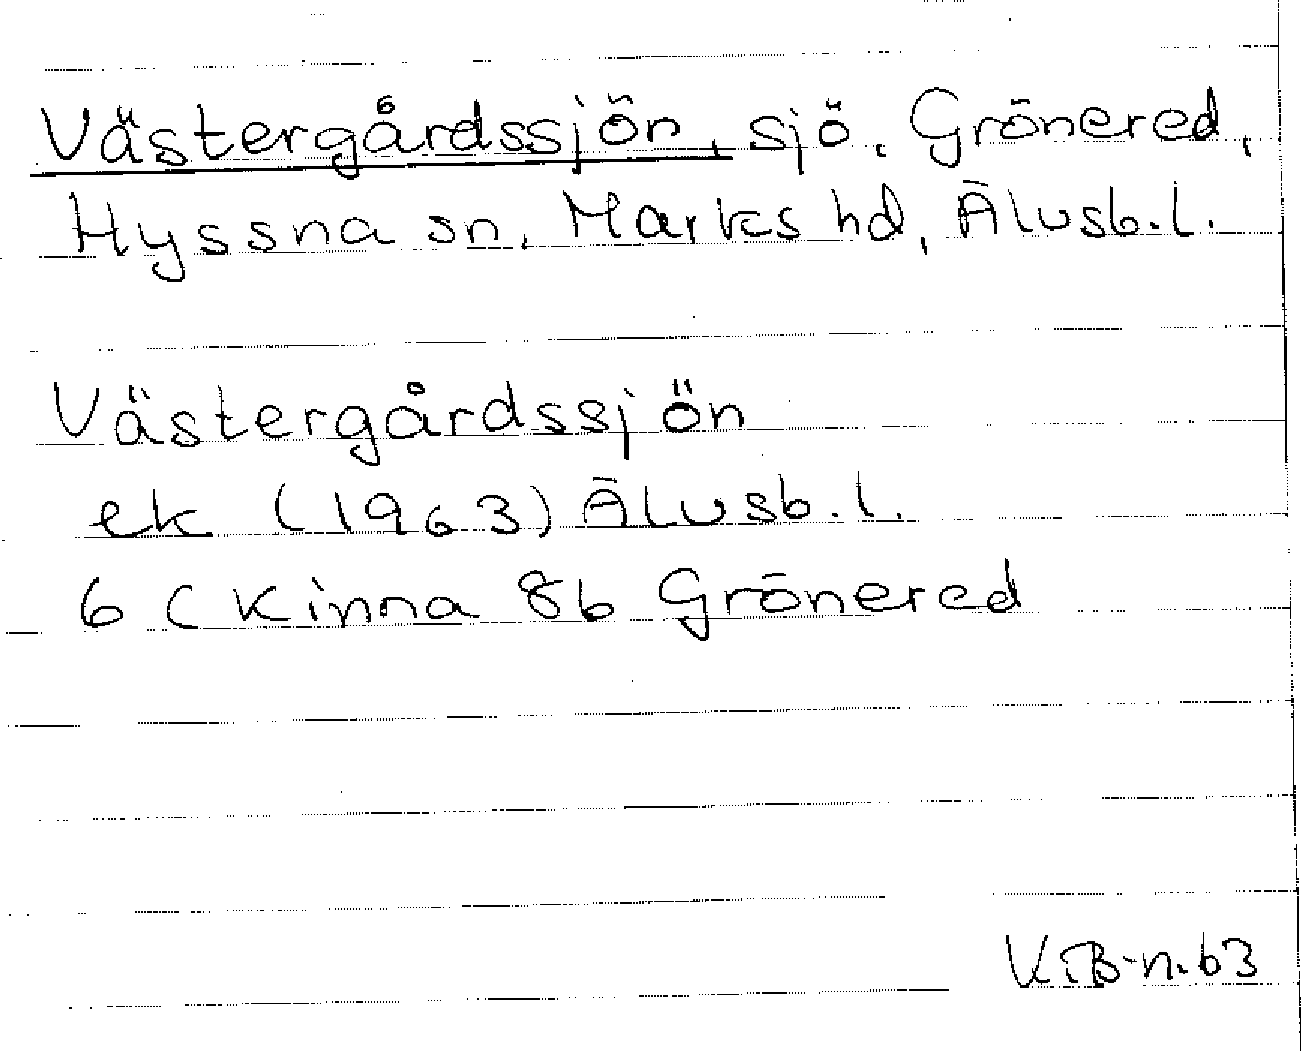 Västergårdssjön, sjö, Grönered,
Hyssna sn, Marks hd, Älvsb.l.
Västergårdssjön
ek (1963) Älvsb.l.
6 C Kinna 8b Grönered
K.B-n.63